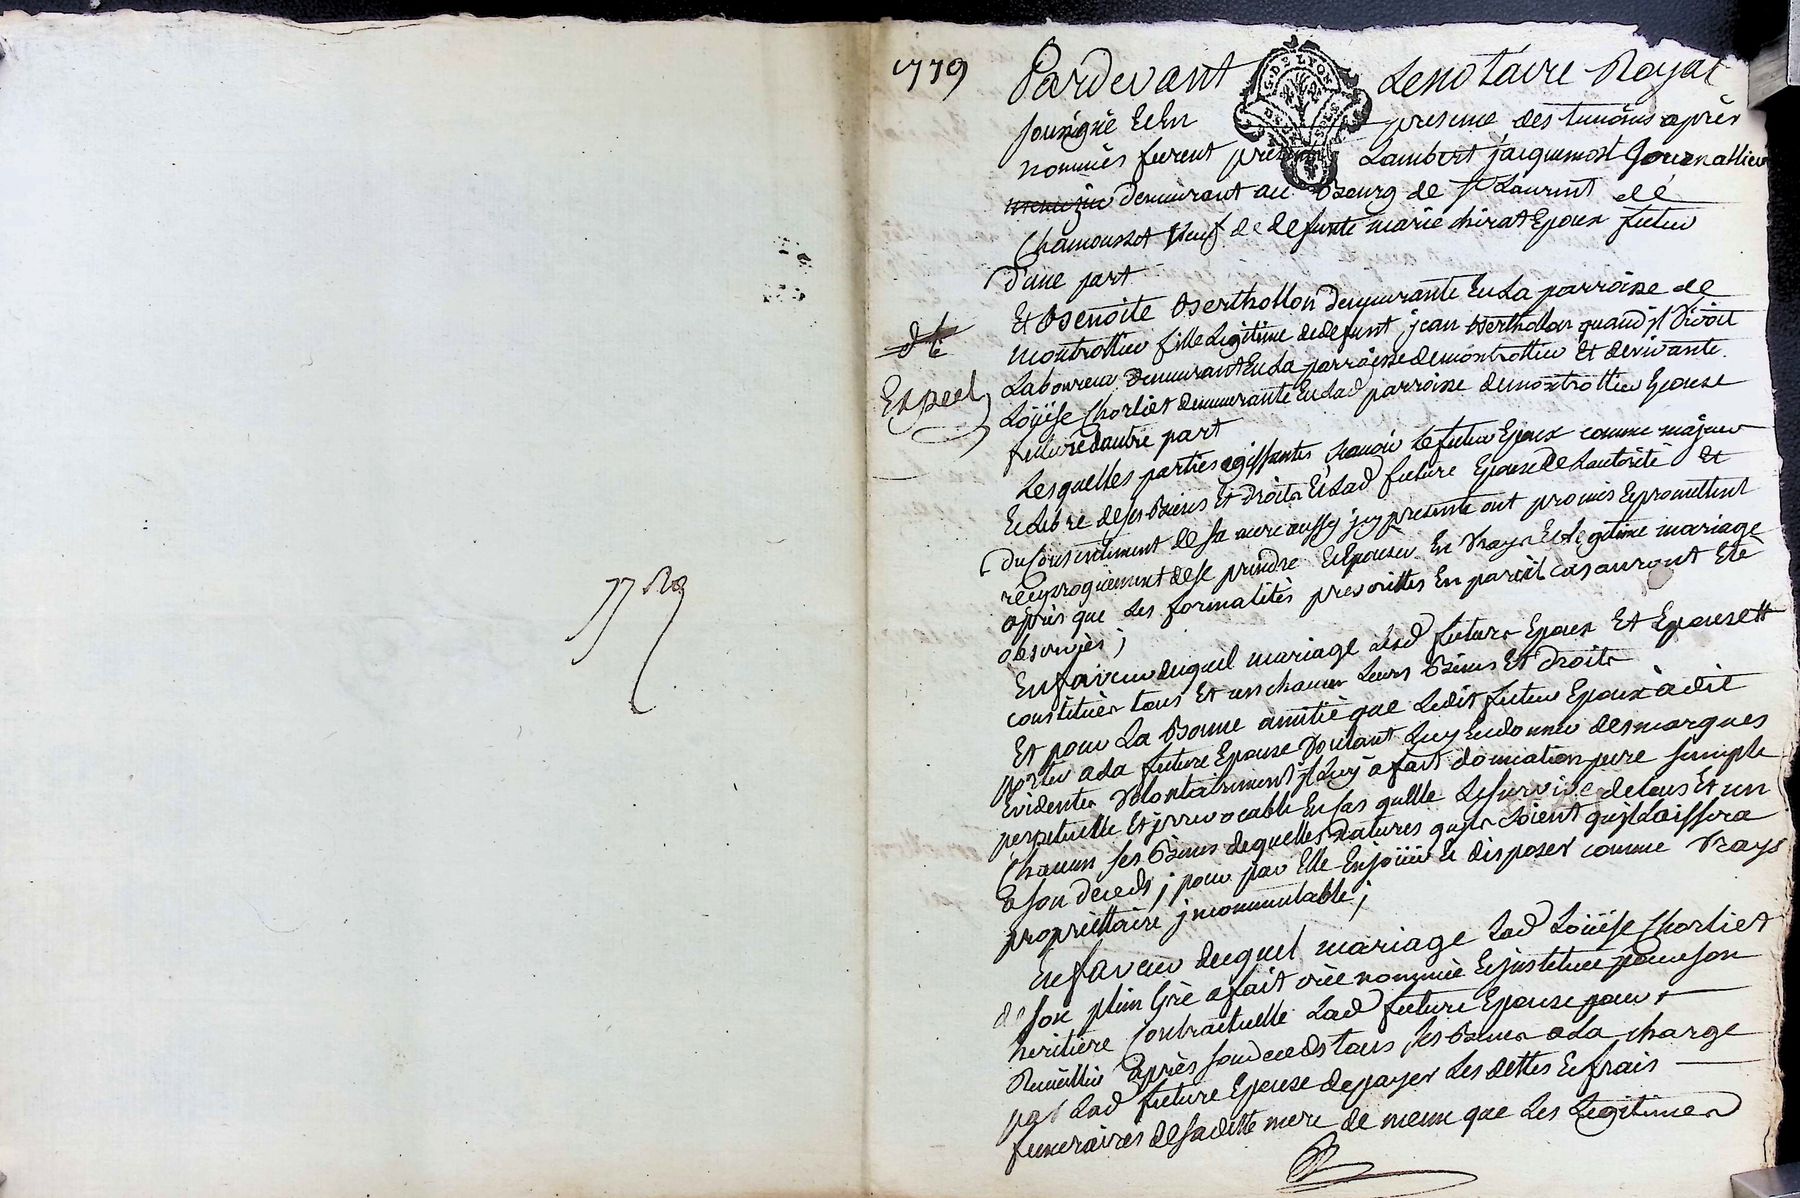 1779
Pardevant Lenotaire Royal
soussigné Et En presence des temoins après
nommés furent presents Lambert jacquemot Journallier
demeurant au Bourg de st Laurent de
Chamousset veuf de defunte marie chirat Epoux futur
d'une part
Et Benoite Berthollon demeurante En La parroisse de
montrottier fille Legitime de defunt jean Berthollon quand jl vivoit
Laboureur demeurant En La parroisse de montrottier Et de vivante
Loüise Chorliet demeurante En Lad parroisse de montrottier Epouse
future d'autre part
Expecd
Lesquelles parties agissantes scavoir Le futur Epoux comme majeur
Et Libre de ses Biens Et droits Et Lad future Epouse de L'autorité Et
du Consentement de sa mere aussy jcy presente ont promis Et promettent
reciproquement de se prendre Et Epouser En vray Et Legitime mariage
après que Les formalités prescrittes En pareil cas auront Eté
observées;
En faveur duquel mariage Lesd futurs Epoux Et Epouse se
constituer tous Et un chacun Leurs Biens Et droits
Et pour La Bonne amitié que Ledit futur Epoux à dit
porter a La future Epouse voulant Luy En donner des marques
Evidentes volontairement jl Luy à fait donnation pure simple
perpetuelle Et jrrevocable En cas qu'Elle Le survive de tous Et un
chacun ses Biens de quelles natures qu'jls soient qu'jl Laissera
à son deceds; pour par Elle En joüir Et disposer comme vrays
propriettaire jncommutable;
En faveur duquel mariage Lad Loüise Chorliet
de son plein Gré a fait créé nommée Et jnstituée pour son
heritiere Contractuelle Lad future Epouse pour
Recüeillir après son deceds tous ses Biens a La charge
par Lad future Epouse de payer Les dettes Et frais
funeraires de sa ditte mere de meme que Les Legitimes